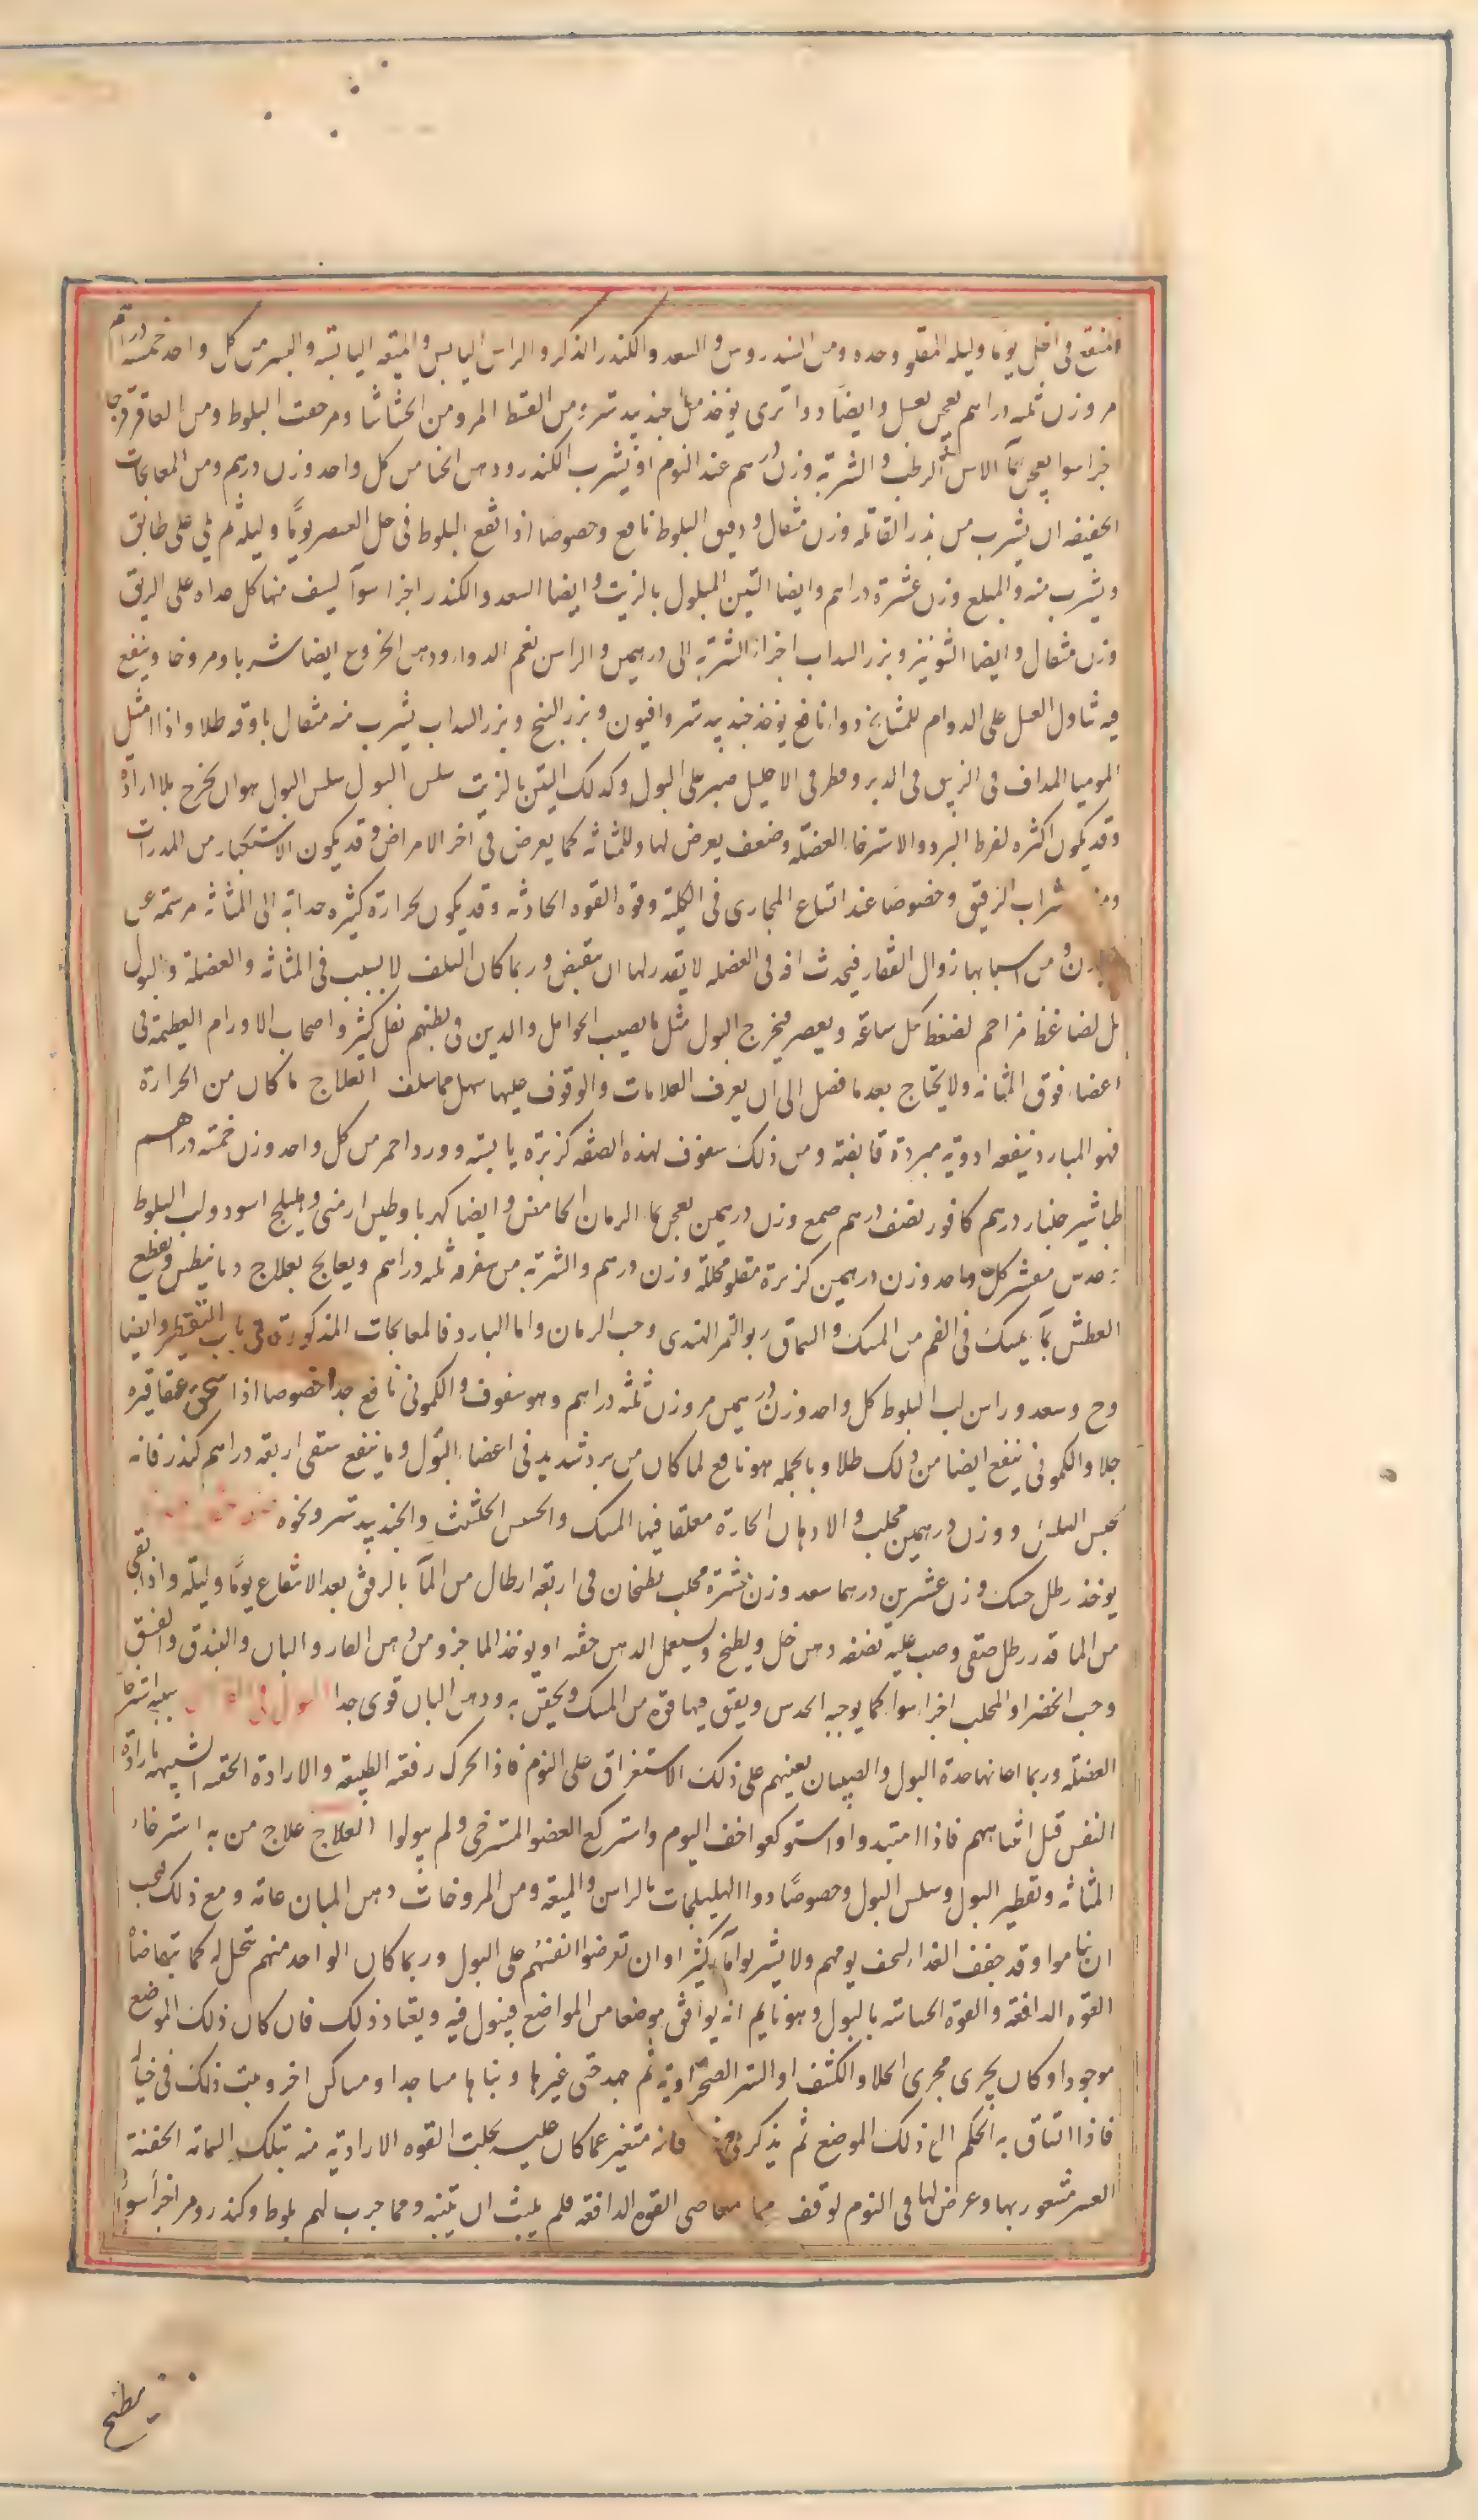 المنقع فى الخل يوما وليله المقلو وحده ومن السندروس والسعد والكندر الذكر والراسن اليابس والميعه اليابسه والبسر من كل واحد خمسه دراهم
مر وزن ثلثه دراهم يعجن بعسل وايضا دوا ترى يوخذ من جندبيدستر ومن القسط المر ومن الحشاشا ومر جفت البلوط ومن العاقرقرحا
جزا سوا يعجن بما الاس الرطب والشربة وزن درهم عند النوم او يشرب الكندر ودهن الحنا من كل واحد وزن درهم ومن المعالجات
الخفيفه ان يشرب من بذر القاقله وزن مثقال ودقيق البلوط نافع وخصوصا اذا انقع البلوط فى خل العنصر يوما وليلة ثم قلى على طابق
ويشرب منه والمبلغ وزن عشرة دراهم وايضا التين المبلول بالزيت وايضا السعد والكندر اجزا سوآ ليسف منها كل غداه على الريق
وزن مثقال وايضا الشونيز وبزر السداب اجزاء الشربة الى درهمين والراسن نعم الدواء ودهن الخروع ايضا شربا ومروخا وينفع
فيه تناول العسل على الدوام للمشايخ دواء نافع يوخذ جندبيدستر وافيون وبزر البنج وبزر السداب يشرب منه مثقال باوقيه طلا واذا امثل
الموميا المداف فى الزيبق فى الدبر وقطر فى الاحليل صبر على البول وكذلك التين بالزيت سلس البول سلس البول هو ان يخرج بلا ارادة
وقد يكون اكثره لفرط البرد والاسترخاء العضله وضعف يعرض لها وللمثانه كما يعرض فى اخر الامراض وقد يكون الاستكثار من المدرات
ومن شراب الرقيق وخصوصا عند اتساع المجارى فى الكلية وقوه القوه الجاذبه وقد يكون لحرارة كثيره جدابة الى المثانه مرسمه عن
البدن ومن اسبابها زوال الفقار فيحدث افه فى العضله لا يقدر لها ان تنقبض وربما كان السلس لا بسبب فى المثانه والعضلة والبول
بل لضاغط مزاحم لضغط كل ساعة ويعصر فيخرج البول مثل ما يصيب الحوامل والدين فى بطنهم ثفل كثير واصحاب الاورام العظيمة فى
اعضاء فوق المثانه ولا يحتاج بعد ما فصل الى ان يعرف العلامات والوقوف عليها سهل مما سلف العلاج ما كان من الحرارة
فهو المبارد نيفعه ادوية مبردة قابضة ومن ذلك سفوف لهذه الصفه كزبرة يابسته وورد احمر من كل واحد وزن خمسة دراهم
طباشير جلنار درهم كافور نصف درهم صمع وزن درهمين يعجن بماء الرمان الحامض وايضا كهربا وطين ارمنى وهليلج اسود ولب البلوط
عدس مقشر كل واحد وزن درهمين كزبرة مقلو مخللة وزن درهم والشربة من سفرفه ثلثه دراهم ويعالج بعلاج ديانيطس ويقطع
العطش بما يمسك فى الفم من المسك والسماق ربو التمر الهندى وحب الرمان واما البارد فالمعالجات المذكورة فى باب التقطير وايضا
وج وسعد وراسن لب البلوط كل واحد وزن درهمين مر وزن ثلثة دراهم وهو سفوف والكمونى نافع جدا خصوصا اذا سحق عقاقيره
جلا والكمونى ينفع ايضا من ذلك طلا وبالجمله هو نافع لما كان من برد شديد فى اعضاء البول وما ينفع ستقى اربعة دراهم كندر فانه
يحبس السلس ووزن درهمين محلب والادهان الحارة معلقا فيها المسك والحسس الحلتيث والجندبيدستر ونحوه
يوخذ رطل حسك وزن عشرين درهما سعد وزن عشرة محلب يطبخان فى اربعة ارطال من المآ بالرفق بعد الانتقاع يوما وليلة واذا بقى
من الما قدر رطل صفى وصب عليه نصفه دهن خل ويطبخ ويستعمل الدهن حقنه او يوخذ الما جزو من دهن الغار والبان والبندق والفستق
وحب الخضرا والمحلب اجزا سوا كما يوجبه الحدس ويفتق فيها قوه من المسك ويحقن به ودهن البان قوى جدا البول فى الفراش سببه استرخآ
العضله وربما اعانها حدة البول والصبيان يعينهم على ذلك الاستغراق على النوم فاذا تحرك رفقة الطبيعة والارادة الخفيه الشبيهه بارادة
النفس قبل انتباههم فاذا امتبدوا واستوكعوا خف اليوم واستركع العضو المسترخى ولم يبولوا العلاج علاج من به استرخاء
المثانه وتقطير البول وسلس البول وخصوصا دوا الهليلجات بالراسن والميعة ومن المروخات دهن المبان عاته ومع ذلك يجب
ان يناموا وقد جفف الغذاء ليخف يومهم ولا يشربوا ماء كثير او ان تعرضوا انفسهم على البول وربما كان الواحد منهم يتخيل له كما تتقاضاه
القوه الدافعة والقوة الحساسه بالبول وهو نايم انه يوافق موضعا من المواضع فيبول فيه ويعتاد ذلك فان كان ذلك الموضع
موجودا وكان يجرى مجرى الخلا والكنف او الستر الصحراوية ثم جهد حتى غيرها وبناها مساجدا ومساكن اخر ويثبت ذلك فى خياله
فاذا انساق به الحلم الى ذلك الموضع ثم يذكر فى فانه متغير عما كان عليه بحلبت القوه الارادية منه بتلك السمانه الخفنة
العسر متسعور بها وعرض لها فى النوم لوقف معاصى القوه الدافعه فلم يلبث ان يتنبه ومما جرب لهم بلوط وكندر ومر اجزآ سوآ
يطبخ